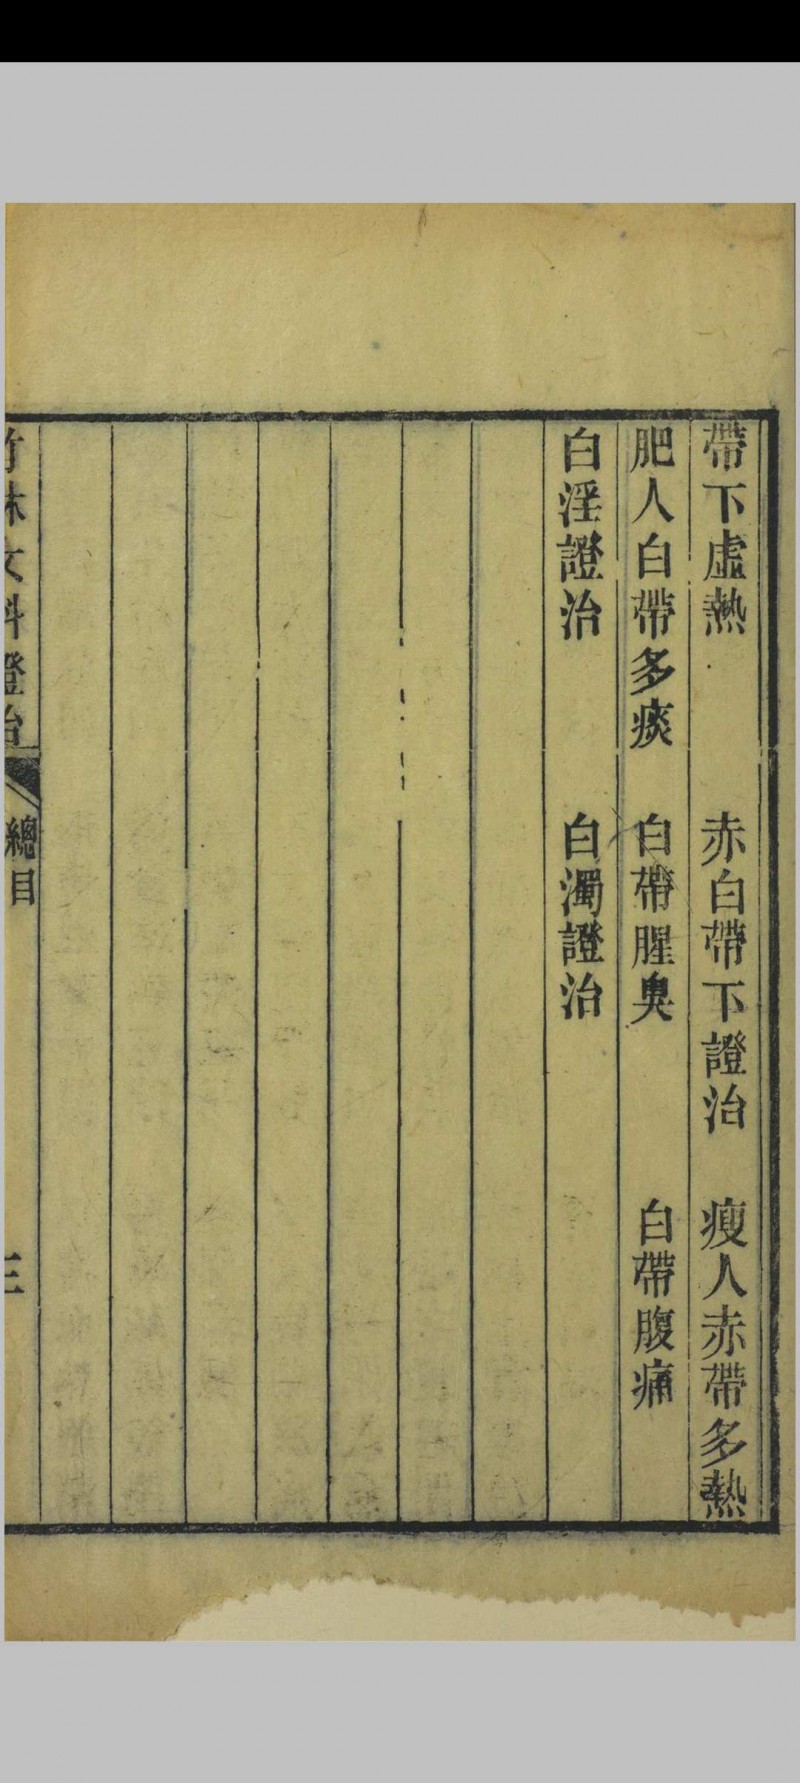 帶下虛熱　赤白帶下證治　瘦人赤帶多熱
肥人白帶多痰　白帶腥臭　白帶腹痛
白淫證治　白濁證治
竹林女科證治　總目　三